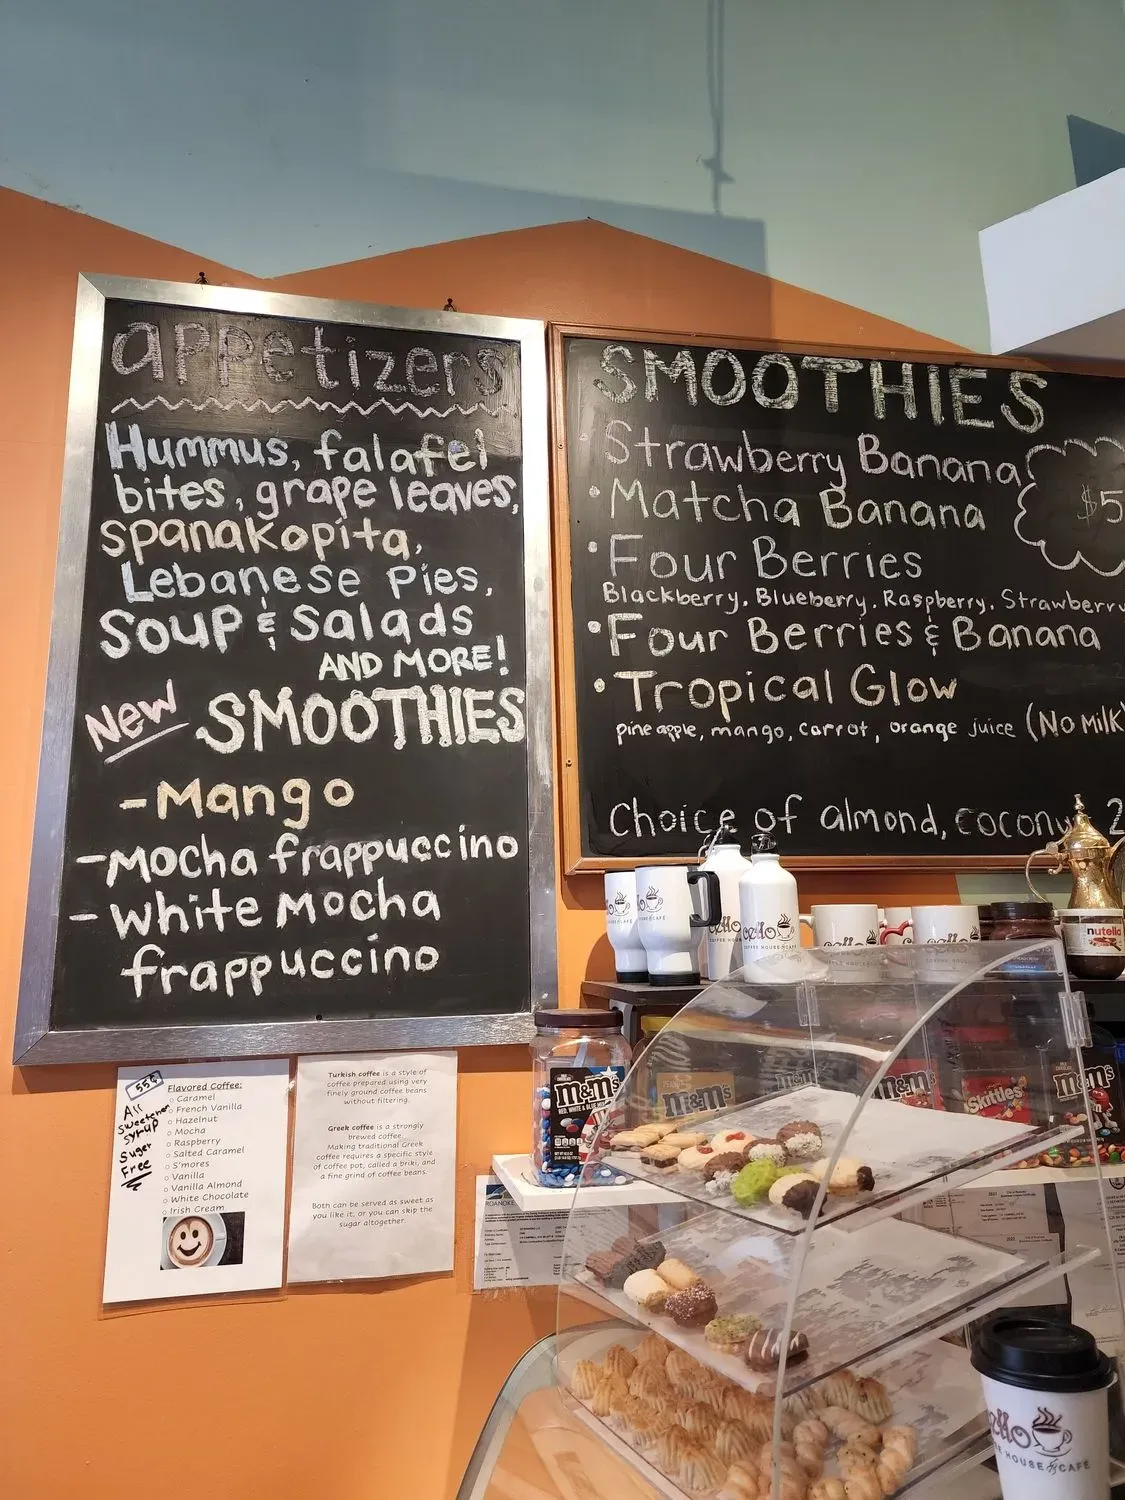 appetizers
Hummus, falafel
bites, grape leaves,
spanakopita,
Lebanese pies,
Soup & Salads
AND MORE!
New SMOOTHIES
- Mango
- Mocha frappuccino
- White Mocha
frappuccino
SMOOTHIES
Strawberry Banana
• Matcha Banana
• Four Berries
Blackberry, Blueberry, Raspberry, Strawberry
• Four Berries & Banana
• Tropical Glow
pineapple, mango, carrot, orange juice (No Milk)
Choice of almond, coconut, 2
$5
55¢
All
sweetener
syrup
Sugar
Free
Flavored Coffee:
○ Caramel
○ French Vanilla
○ Hazelnut
○ Mocha
○ Raspberry
○ Salted Caramel
○ S'mores
○ Vanilla
○ Vanilla Almond
○ White Chocolate
○ Irish Cream
Turkish coffee is a style of
coffee prepared using very
finely ground coffee beans
without filtering.
Greek coffee is a strongly
brewed coffee.
Making traditional Greek
coffee requires a specific style
of coffee pot, called a briki, and
a fine grind of coffee beans.
Both can be served as sweet as
you like it, or you can skip the
sugar altogether.
cello
COFFEE HOUSE CAFÉ
nutella
m&m's
RED, WHITE & BLUE
m&m's
m&m's
Skittles
m&m's
ROANOKE
ello
HOUSE CAFÉ